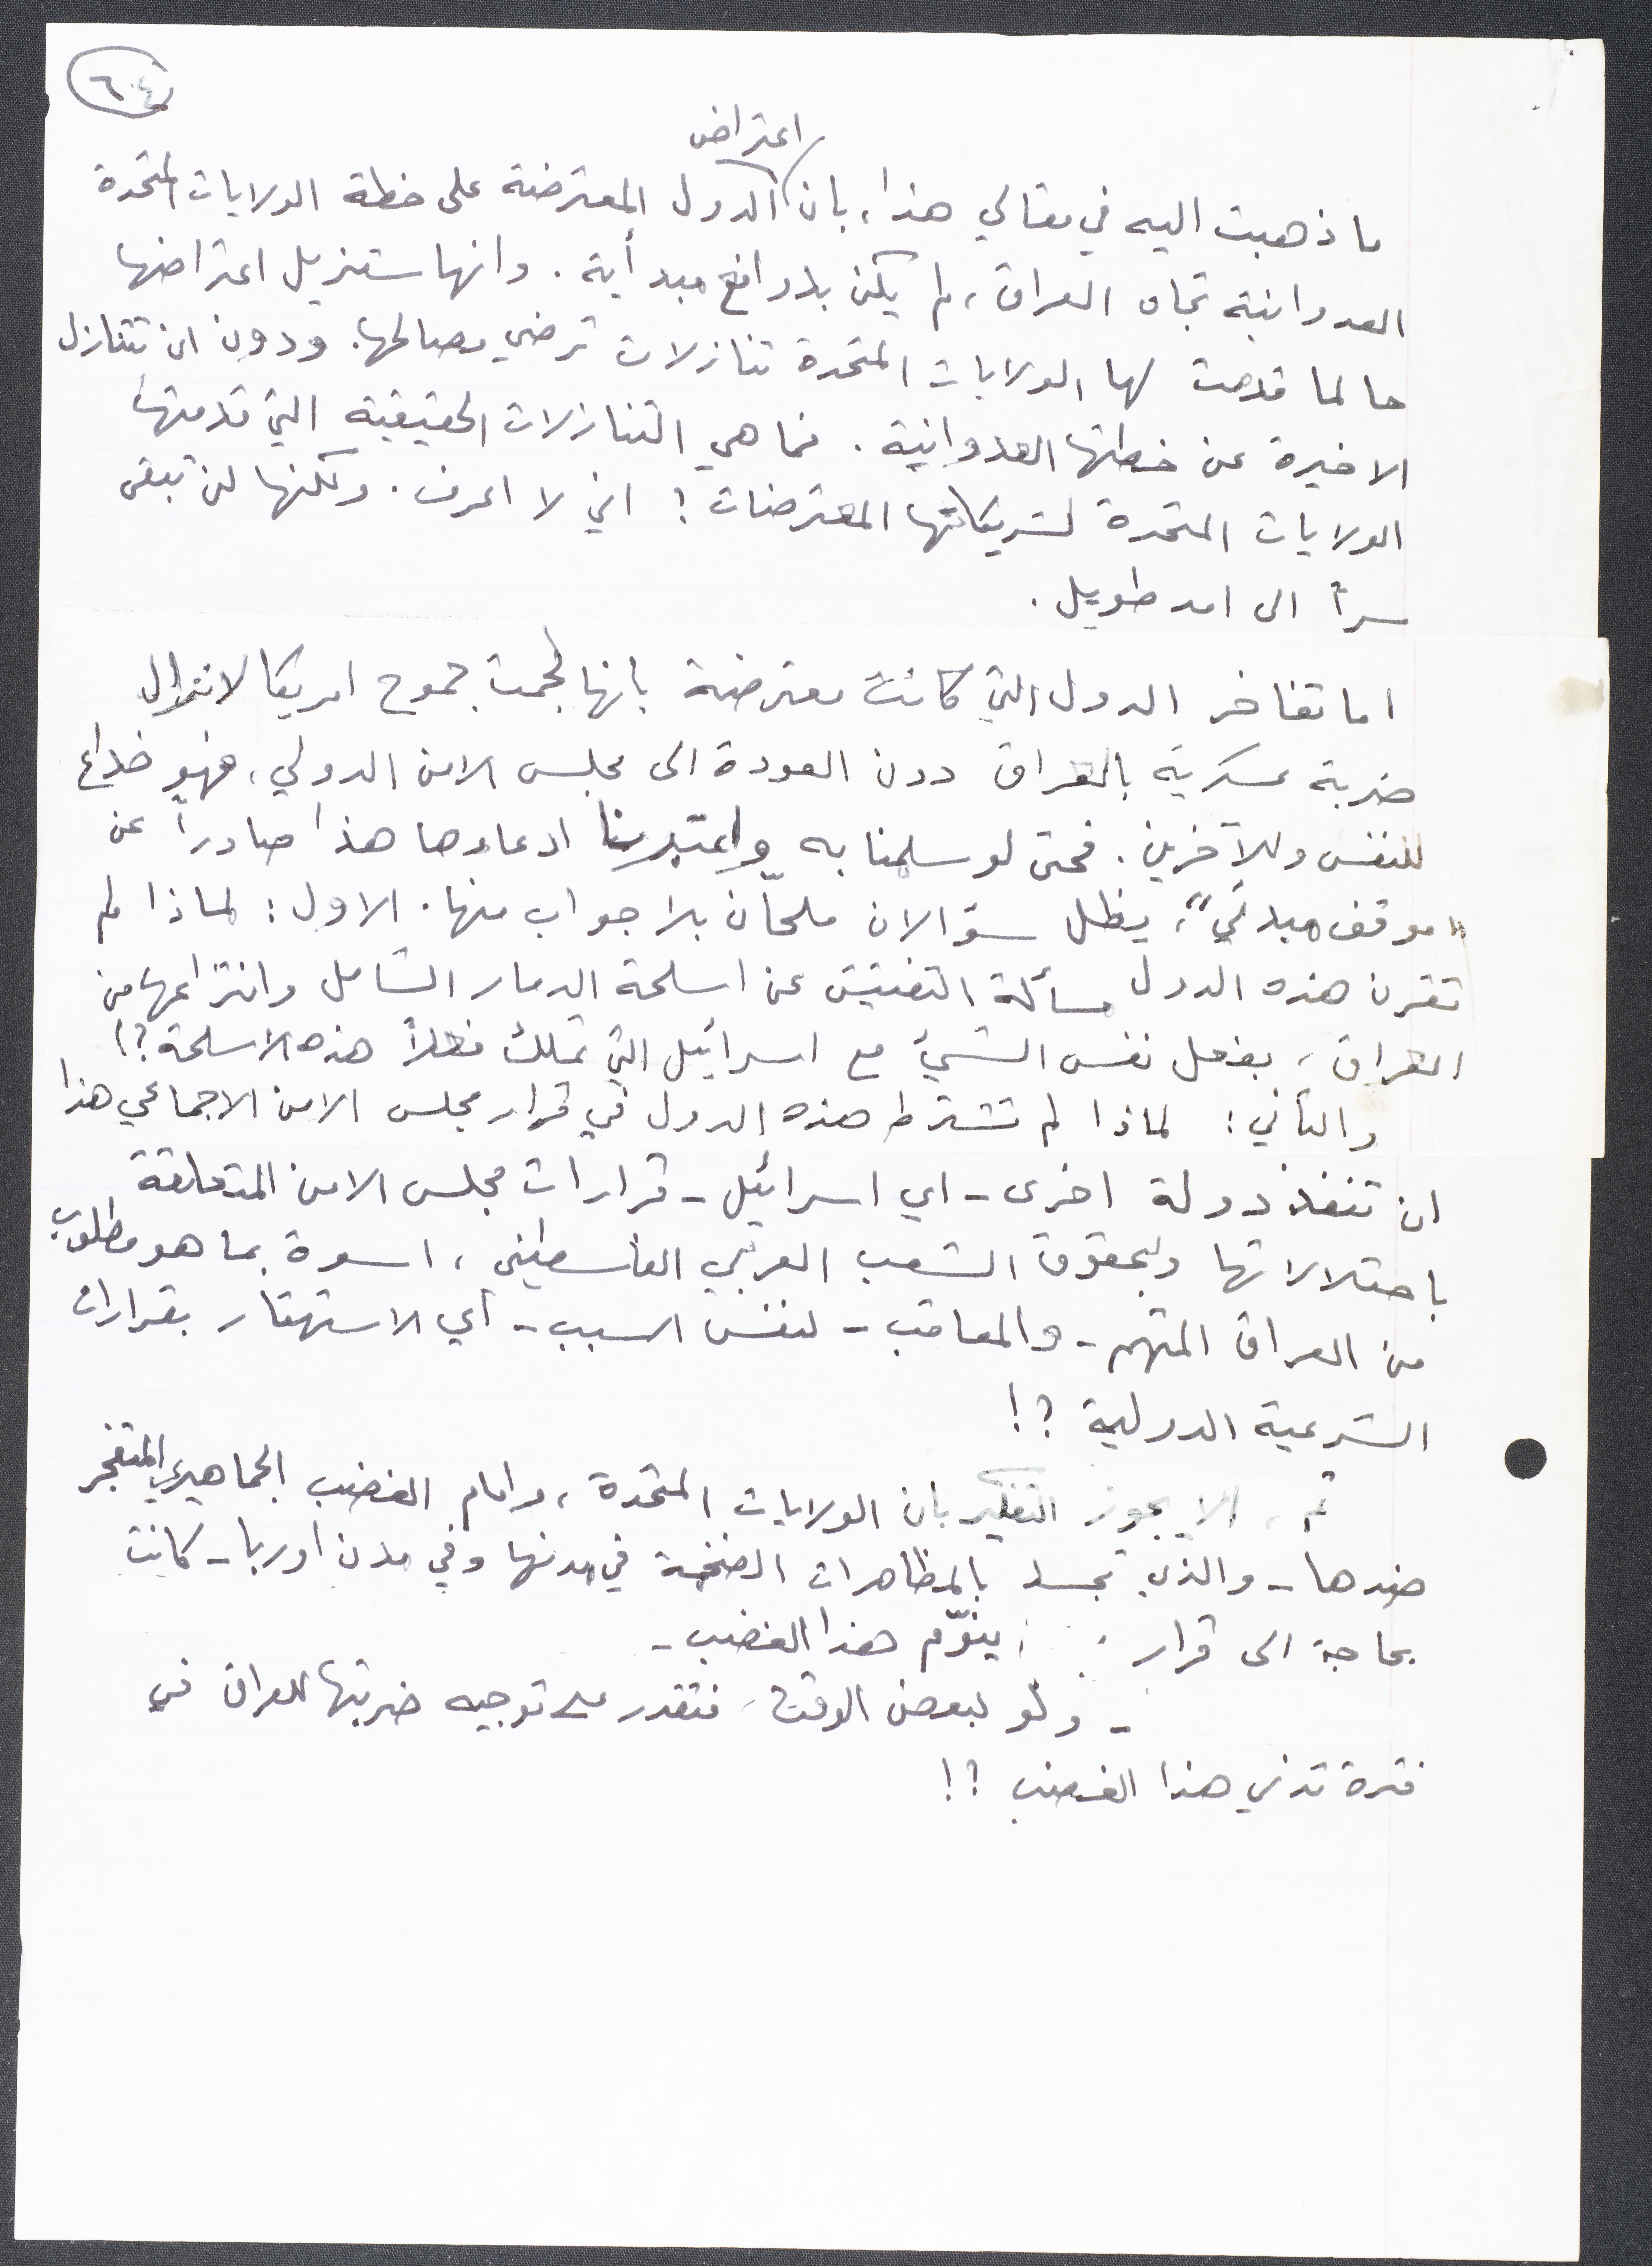 ٦٠٤
اعتراض
ما ذهبت اليه في مقالي هذا، بان الدول المعترضة على خطة الولايات المتحدة
العدوانية تجاه العراق، لم يكن بدوافع مبدأية. وانها ستزيل اعتراضها
حالما قدمت لها الولايات المتحدة تنازلات ترضي مصالحها. ودون ان تتنازل
الاخيرة عن خطتها العدوانية. فما هي التنازلات الحقيقية التي قدمتها
الولايات المتحدة لشريكاتها المعترضات؟ اني لا اعرف. ولكنها لن تبقى
سراً الى امد طويل.
اما تفاخر الدول التي كانت معترضة بانها لجمت جموح امريكا لانزال
ضربة عسكرية بالعراق دون العودة الى مجلس الامن الدولي، فهو خداع
للنفس وللآخرين. فحتى لو سلمنا به واعتبرنا ادعاءها هذا صادراً عن
"موقف مبدئي"، يظل سؤالان ملحّان بلا جواب منها. الاول: لماذا لم
تقرن هذه الدول مسألة التفتيش عن اسلحة الدمار الشامل وانتزاعها من
العراق، بفعل نفس الشيئ مع اسرائيل التي تملك فعلاً هذه الاسلحة؟!
والثاني: لماذا لم تشترط هذه الدول في قرار مجلس الامن الاجماعي هذا
ان تنفذ دولة اخرى - اي اسرائيل - قرارات مجلس الامن المتعلقة
باحتلالاتها وبحقوق الشعب العربي الفلسطيني، اسوة بما هو مطلوب
من العراق المتهم - والمعاقب - لنفس السبب - أي الاستهتار بقرارات
الشرعية الدولية؟!
ثم، الا يجوز التفكير بان الولايات المتحدة، وامام الغضب الجماهيري المتفجر
ضدها - والذي تجسد بالمظاهرات الضخمة في مدنها وفي مدن اوربا - كانت
بحاجة الى قرار ينوّم هذا الغضب -
- ولو لبعض الوقت، فتقدر على توجيه ضربتها للعراق في
فترة تدني هذا الغضب؟!